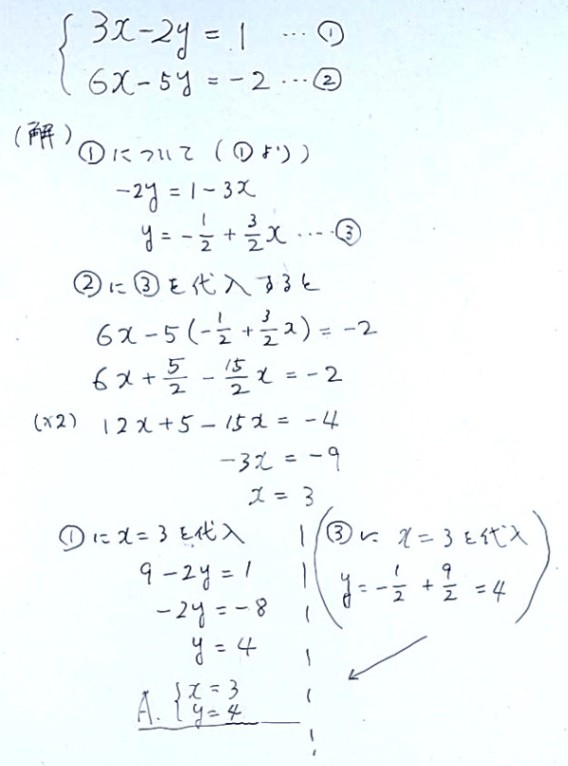 3x-2y=1 …①
6x-5y=-2…②
(解)
①について(①より)
-2y=1-3x
y=-1/2+3/2x …③
②に③を代入すると
6x-5(-1/2+3/2x)=-2
6x+5/2-15/2x=-2
(×2) 12x+5-15x=-4
-3x=-9
x=3
①にx=3を代入
9-2y=1
-2y=-8
y=4
(③に x=3を代入
y=-1/2+9/2=4)
A. {x=3
y=4